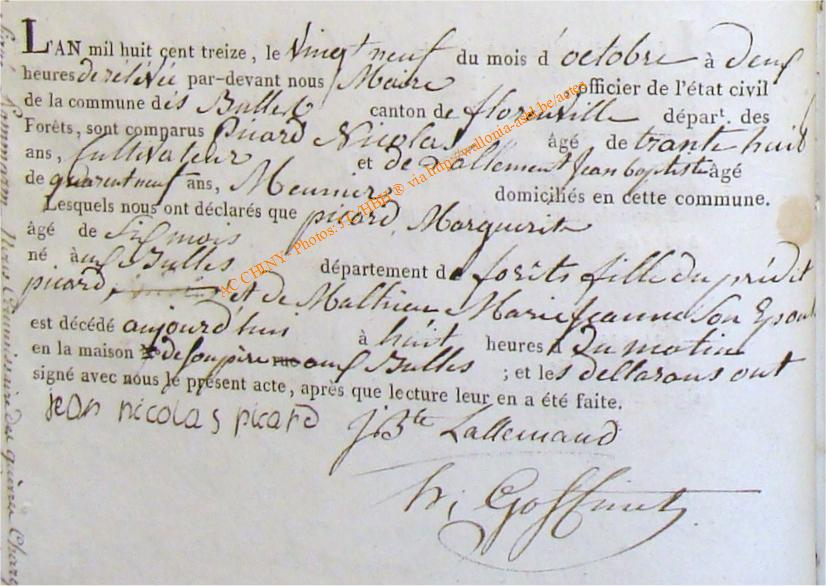 L'AN mil huit cent treize, le vingt neuf du mois d'octobre à deux
heures de rélévée par-devant nous Maire officier de l'état civil
de la commune des Bulles canton de florenville départ. des
Forêts, sont comparus Picard Nicolas âgé de trante huit
ans, Cultivateur et de Lallement Jean baptiste âgé
de quarent neuf ans, Meunier domiciliés en cette commune.
Lesquels nous ont déclarés que picard, Marguerite
âgé de six mois
né aux Bulles département de forêts fille du prédit
picard, et de Mathieu Marie Jeanne son Epouse
est décédé aujourd'hui à huit heures du matin
en la maison de son père rue aux Bulles ; et les déclarans ont
signé avec nous le présent acte, après que lecture leur en a été faite.
jean nicolas picard J Bte Lallemand
h, Goffinet
AC CHINY- Photos: JC/HBH® via http://wallonia-asd.be/actes